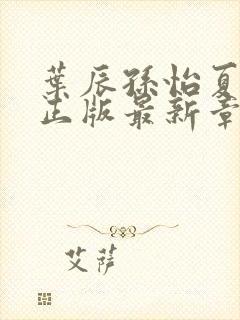 葉辰孫怡夏
正版最新章
艾薩